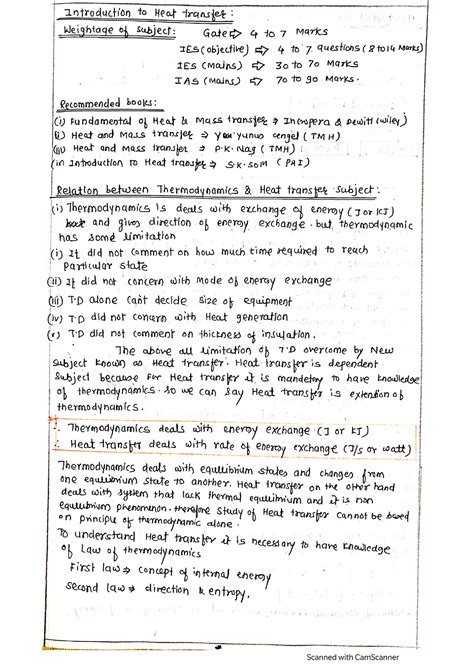 Introduction to Heat transfer :
Weightage of Subject :
Gate ⇨ 4 to 7 Marks
IES (objective) ⇨ 4 to 7 questions (8 to 14 Marks)
IES (Mains) ⇨ 30 to 70 Marks
IAS (Mains) ⇨ 70 to 90 Marks.
Recommended books :
(i) Fundamental of Heat & Mass transfer ⇒ Incropera & Dewitt (wiley)
(ii) Heat and Mass transfer ⇒ Yunus cengel (TMH)
(iii) Heat and Mass transfer ⇒ P.K. Nag (TMH)
(iv Introduction to Heat transfer ⇒ S.K. SOM (PHI)
Relation between Thermodynamics & Heat transfer Subject :
(i) Thermodynamics is deals with exchange of energy (J or KJ)
and gives direction of energy exchange. but thermodynamic
has some limitation
(i) It did not comment on how much time required to reach
Particular state
(ii) It did not concern with mode of energy exchange
(iii) T.D alone can't decide size of equipment
(iv) T.D did not concern with Heat generation
(v) T.D did not comment on thickness of insulation.
The above all limitation of T.D overcome by New
Subject known as Heat transfer. Heat transfer is dependent
Subject because for Heat transfer it is mandetory to have knowledge
of thermodynamics. so we can say Heat transfer is extention of
thermodynamics.
∴ Thermodynamics deals with energy exchange (J or KJ)
∴ Heat transfer deals with rate of energy exchange (J/s or watt)
Thermodynamics deals with equilibrium states and changes from
one equilibrium state to another. Heat transfer on the other hand
deals with system that lack thermal equilibrium and it is non
equilibrium phenomenon. therefore study of Heat transfer cannot be based
on principle of thermodynamic alone.
To understand Heat transfer it is necessary to have knowledge
of Law of thermodynamics
First law ⇒ concept of internal energy
second law ⇒ direction & entropy.
Scanned with CamScanner